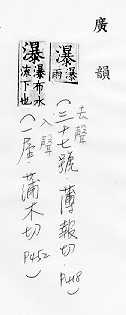 廣韻
瀑 瀑雨
去聲
(三十七號．薄報切 P418)
瀑 瀑布水
流下也
入聲
(一屋．蒲木切 P452)